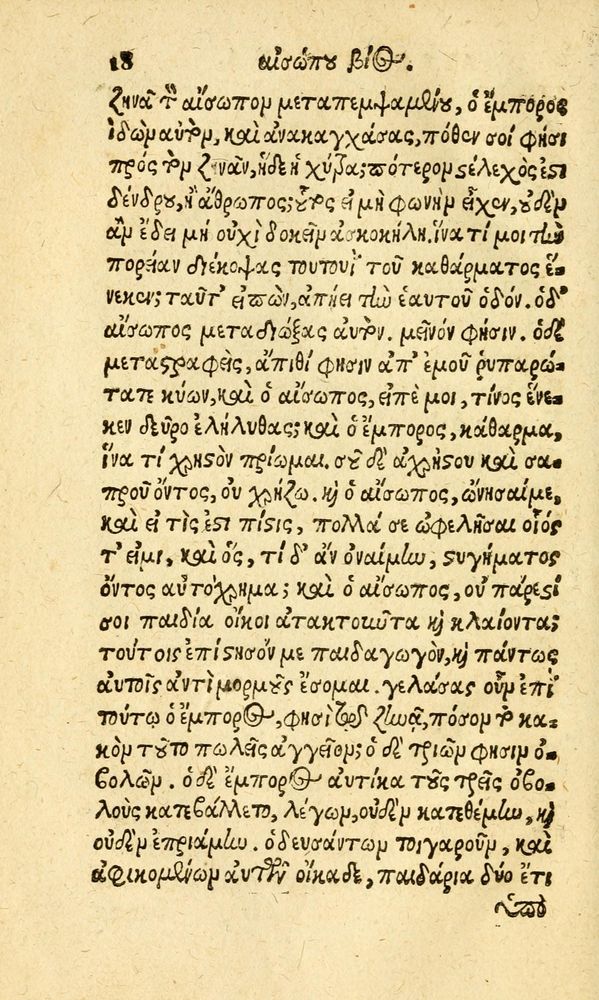 18 αἰσώπου βίος.
ζηνᾶ τὸν αἴσωπον μεταπεμψαμένου, ὁ ἔμπορος
ἰδὼν αὐτὸν, καὶ ἀνακαγχάσας, πόθεν σοί φησι
πρὸς τὸν ζηνᾶν, ἥδε ἡ χύτρα; πότερον στέλεχός ἐστι
δένδρου, ἢ ἄνθρωπος; οὗτος εἰ μὴ φωνὴν εἶχεν, οὐδὲν
ἂν ἔδει μὴ οὐχὶ δοκεῖν ἀσκοκήλη. ἵνα τί μοι τὴν
πορείαν διέκοψας τουτουὶ τοῦ καθάρματος ἕ-
νεκεν; ταῦτ' εἰπὼν, ἀπῄει τὴν ἑαυτοῦ ὁδόν. ὁ δ'
αἴσωπος μεταδιώξας αὐτὸν. μεῖνόν φησιν. ὁ δὲ
μεταστραφεὶς, ἄπιθί φησιν ἀπ' ἐμοῦ ῥυπαρώ-
τατε κύων, καὶ ὁ αἴσωπος, εἰπέ μοι, τίνος ἕνε-
κεν δεῦρο ἐλήλυθας; καὶ ὁ ἔμπορος, κάθαρμα,
ἵνα τί χρηστὸν πρίωμαι. σοῦ δὲ ἀχρήστου καὶ σα-
προῦ ὄντος, οὐ χρήζω. καὶ ὁ αἴσωπος, ὤνησαί με,
καὶ εἰ τίς ἐστι πίστις, πολλά σε ὠφελῆσαι οἷός
τ' εἰμι, καὶ ὃς, τί δ' ἂν ὀναίμην, στυγήματος
ὄντος αὐτόχρημα; καὶ ὁ αἴσωπος, οὐ πάρεστί
σοι παιδία οἴκοι ἀτακτοῦντα καὶ κλαίοντα;
τούτοις ἐπίστησόν με παιδαγωγὸν, καὶ πάντως
αὐτοῖς ἀντὶ μορμοῦς ἔσομαι. γελάσας οὖν ἐπὶ
τούτῳ ὁ ἔμπορος, φησὶ πρὸς ζηνᾶ, πόσου τὸ κα-
κὸν τοῦτο πωλεῖς ἀγγεῖον; ὁ δὲ τριῶν φησιν ὀ-
βολῶν. ὁ δὲ ἔμπορος αὐτίκα τοὺς τρεῖς ὀβο-
λοὺς κατεβάλλετο, λέγων, οὐδὲν κατεθέμην, καὶ
οὐδὲν ἐπριάμην. ὁδευσάντων τοιγαροῦν, καὶ
ἀφικομένων αὐτῶν οἴκαδε, παιδάρια δύο ἔτι
ὑπὸ